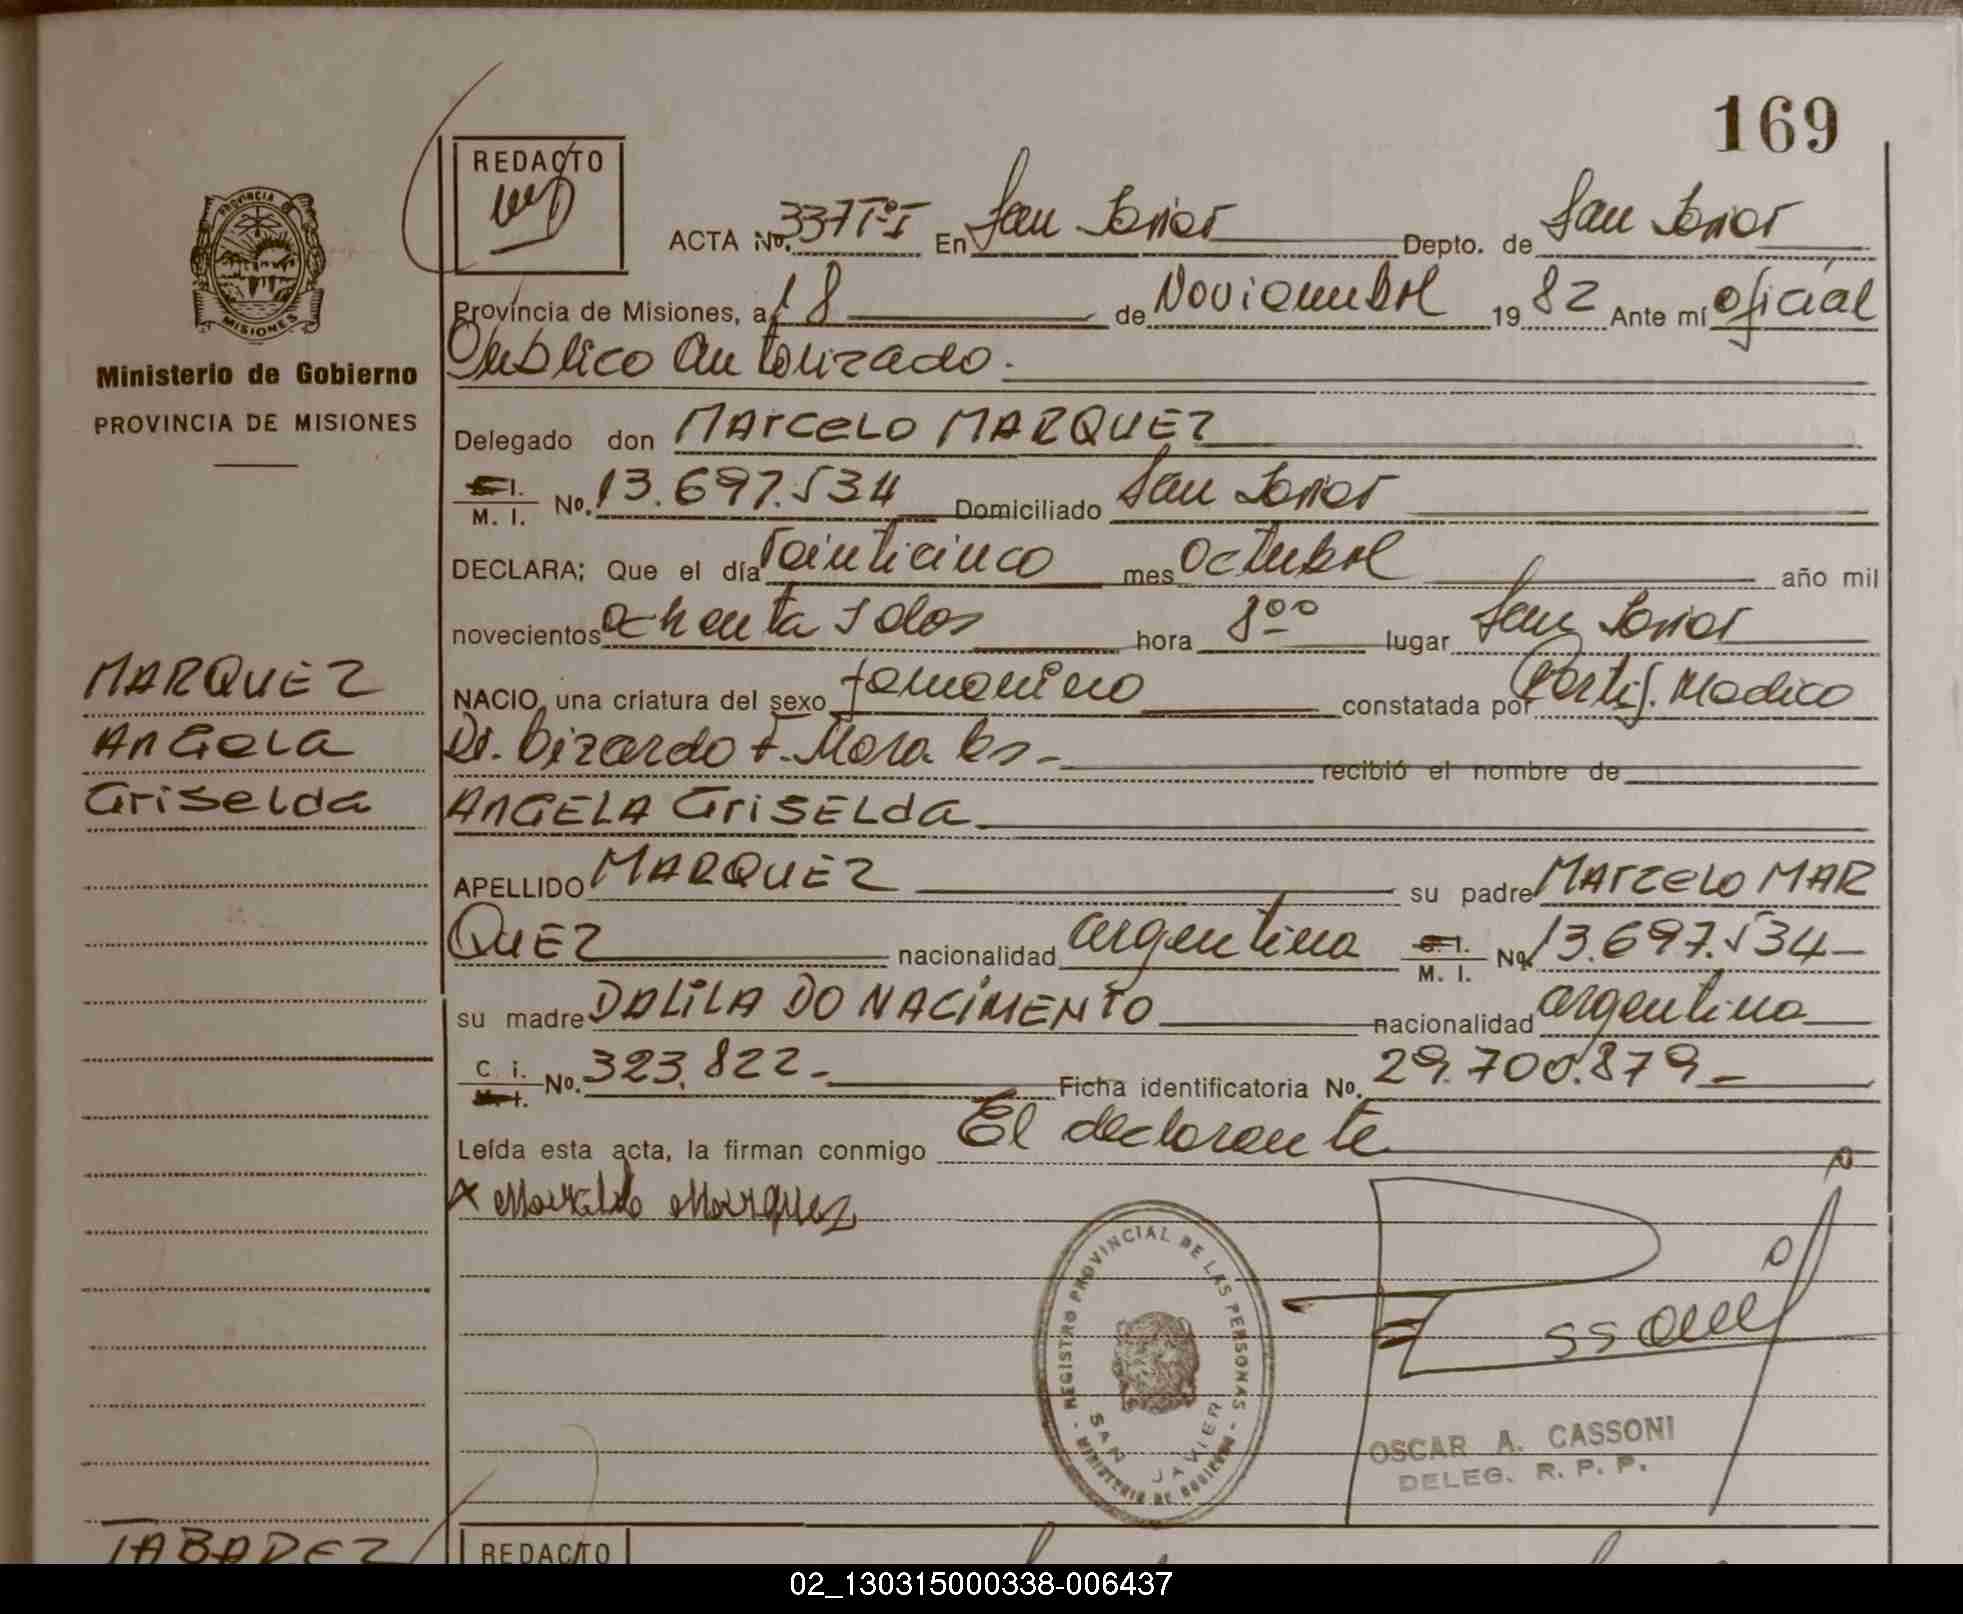 169
REDACTO
ACTA No. 337 Tº I En San Javier Depto. de San Javier
Provincia de Misiones, a 18 de Noviembre 1982 Ante mí oficial
Publico autorizado.
Delegado don MARCELO MARQUEZ
C. I. M. I. No. 13.697.534 Domiciliado San Javier
DECLARA; Que el día veinticinco mes octubre año mil
novecientos ochenta y dos hora 8 00 lugar San Javier
NACIO, una criatura del sexo femenino constatada por Certif. Medico
Dr. Bizardo F. Morales - recibió el nombre de
ANGELA GriSELda
APELLIDO MARQUEZ su padre MArcelo MAR
QUEZ nacionalidad argentina C. I. M. I. No. 13.697.534-
su madre DALILA DO NACIMENTO nacionalidad argentina
C. i. M. I. No. 323.822- Ficha identificatoria No. 29.700.879-
Leída esta acta, la firman conmigo El declarante
x Marcelo Marquez
PROVINCIA DE MISIONES
Ministerio de Gobierno
PROVINCIA DE MISIONES
MARQUEZ
AnGela
GriSelda
REGISTRO PROVINCIAL DE LAS PERSONAS
- MINISTERIO DE GOBIERNO -
SAN JAVIER
OSCAR A. CASSONI
DELEG. R. P. P.
REDACTO
02_130315000338-006437